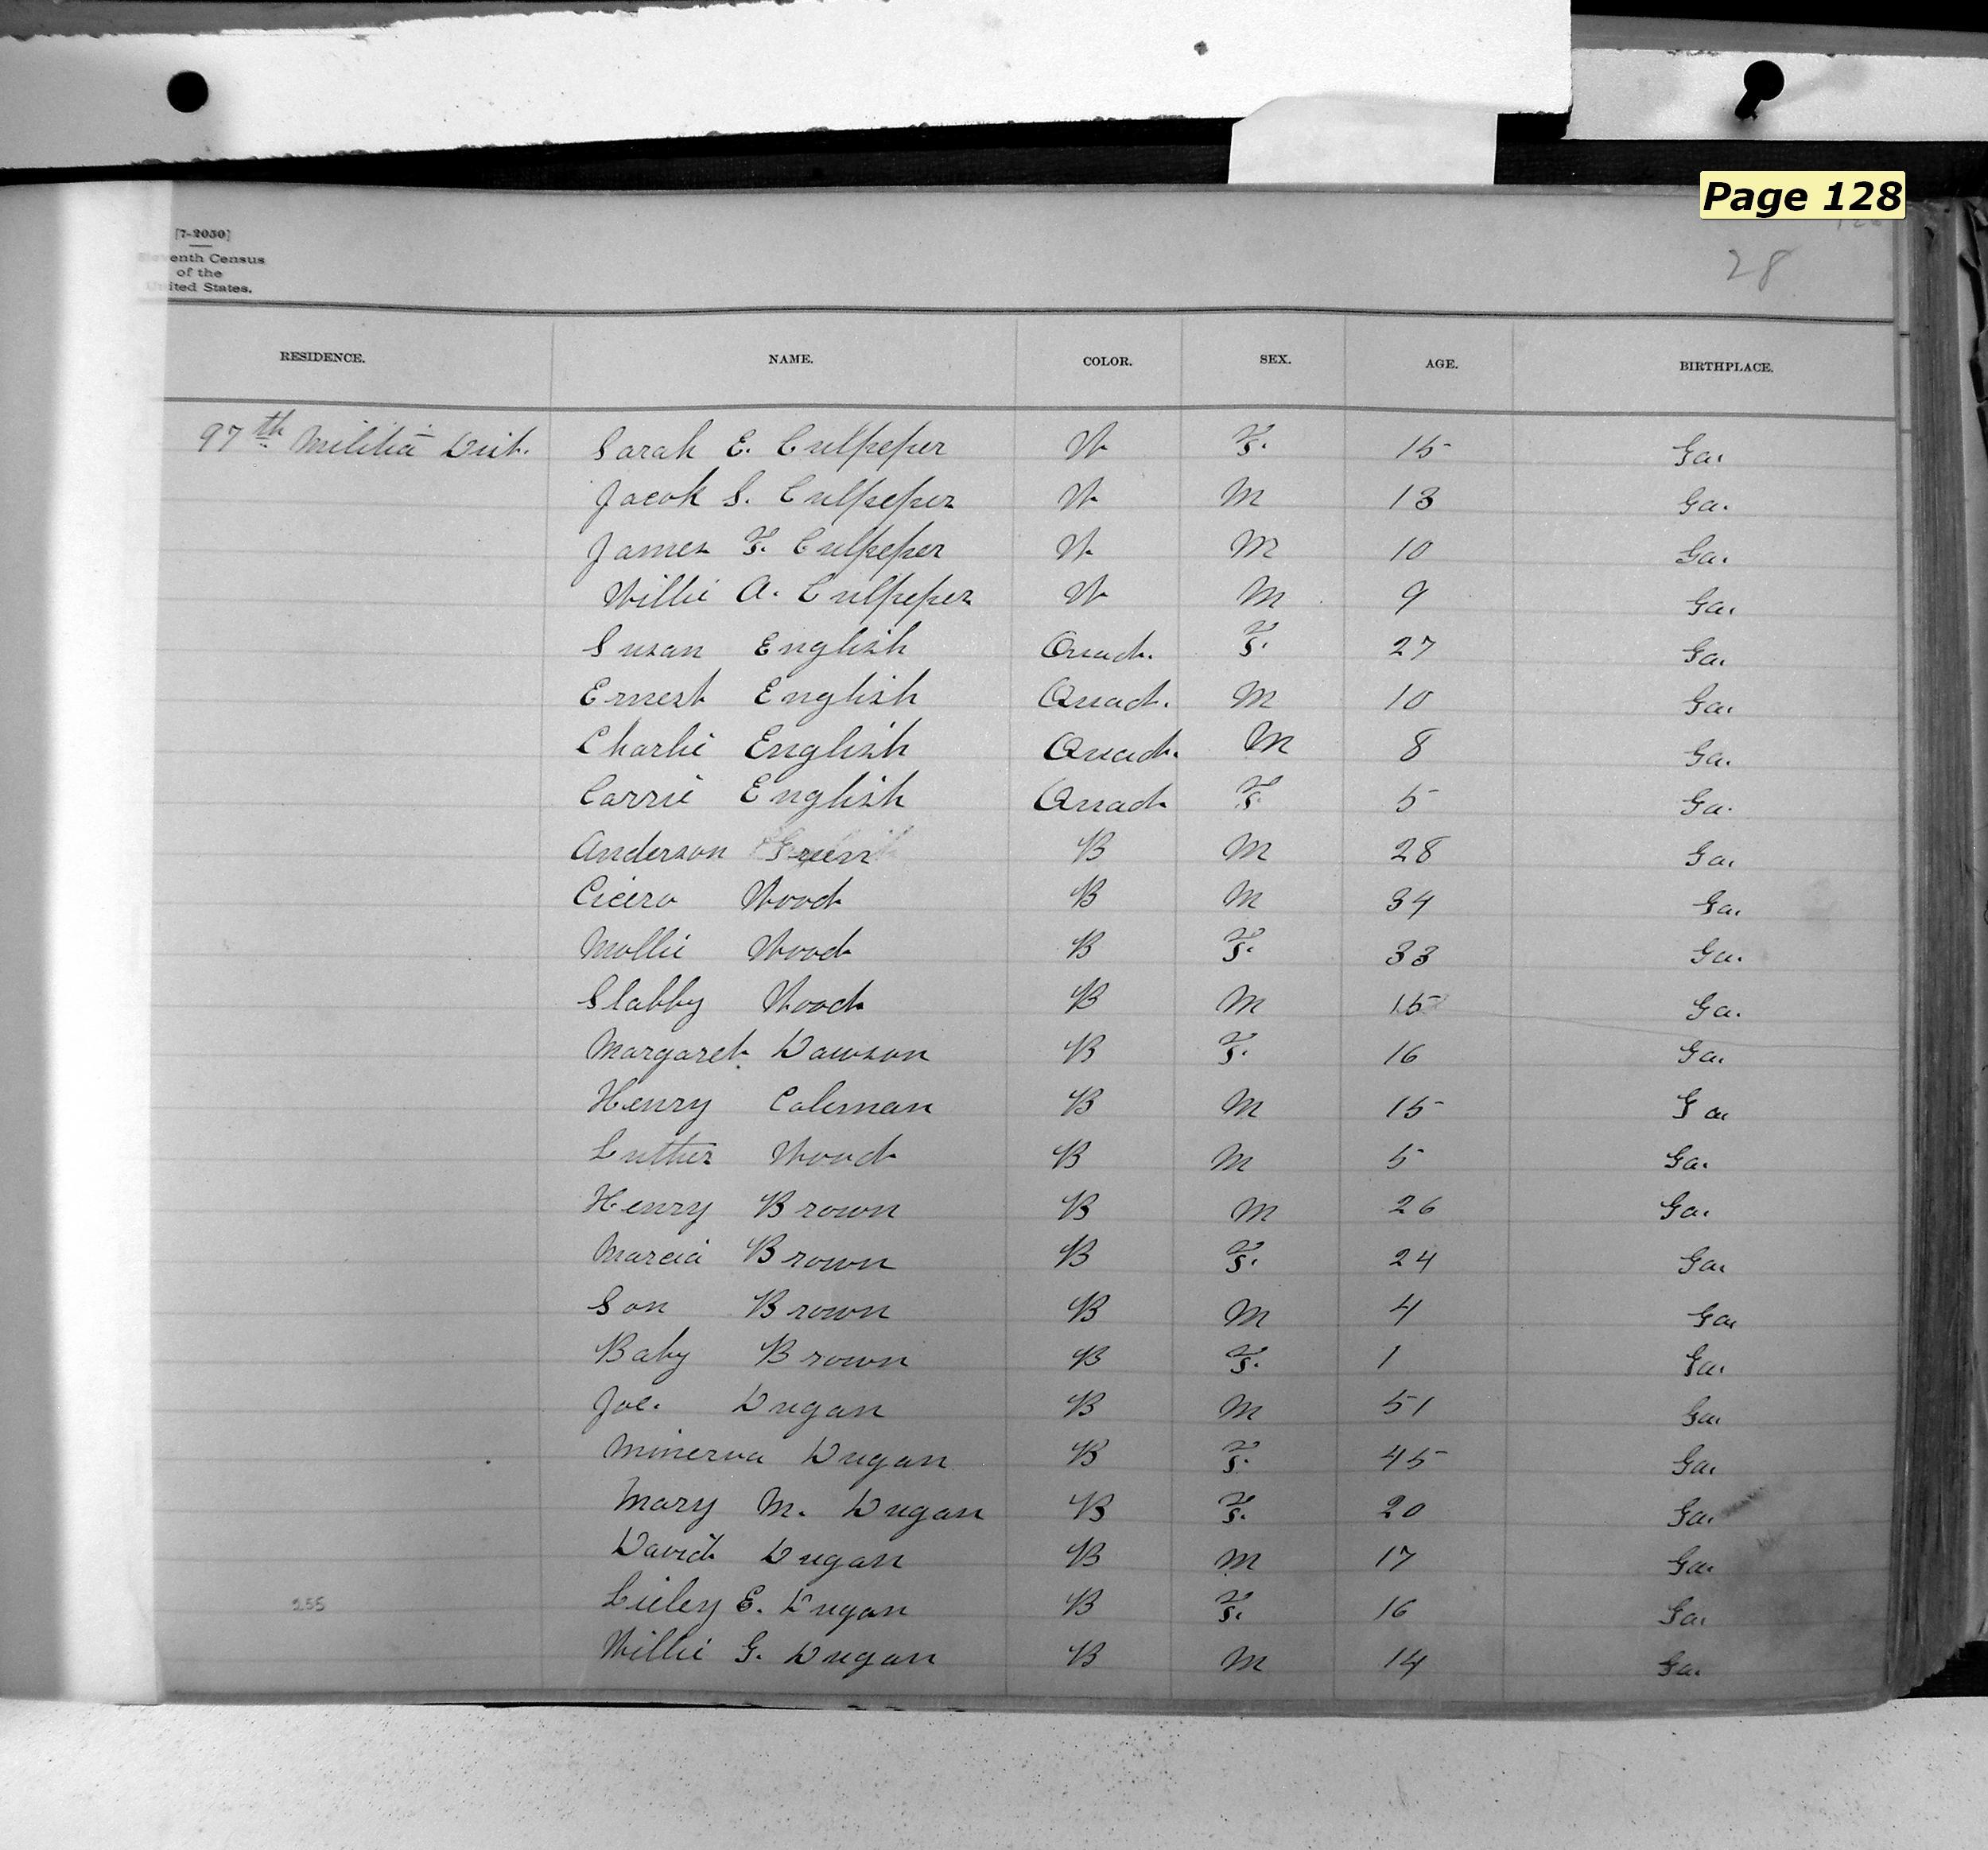 Page 128
[7-2050]
Eleventh Census
of the
United States.
28
RESIDENCE. NAME. COLOR. SEX. AGE. BIRTHPLACE.
97th Militia Dist. Sarah E. Culpeper W F. 15 Ga.
Jacob S. Culpeper W M 13 Ga.
James F. Culpeper W M 10 Ga.
Willie A. Culpeper W M 9 Ga.
Susan English Quad. F. 27 Ga.
Ernest English Quad. M 10 Ga.
Charlie English Quad. M 8 Ga.
Carrie English Quad F 5 Ga.
Anderson Green B M 28 Ga.
Cicero Wood B M 34 Ga.
Mollie Wood B F. 33 Ga.
Slabby Wood B M 15 Ga.
Margaret Dawson B F. 16 Ga.
Henry Coleman B M 15 Ga
Luther Wood B M 5 Ga.
Henry Brown B M 26 Ga.
Marcia Brown B F. 24 Ga.
Son Brown B M 4 Ga
Baby Brown B F. 1 Ga.
Joe. Dugan B M 51 Ga.
Minerva Dugan B F. 45 Ga.
Mary M. Dugan B F. 20 Ga.
David Dugan B M 17 Ga.
255 E. Dugan B F. 16 Ga.
Willie G. Dugan B M 14 Ga.